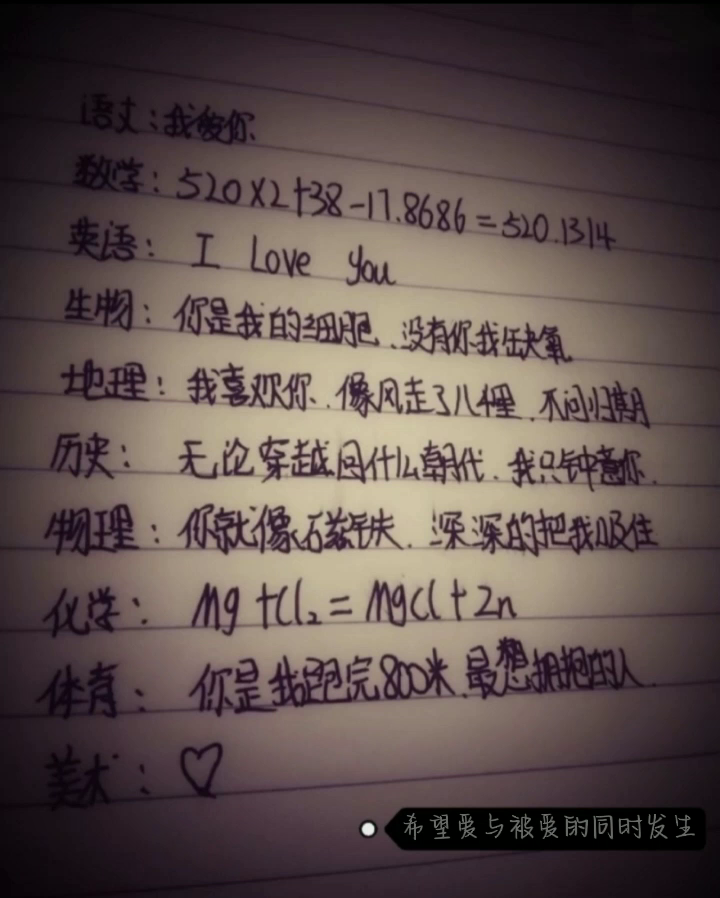 语文:我爱你
数学:520×2+38-17.8686=520.1314
英语: I Love you
生物:你是我的细胞、没有你我缺氧
地理:我喜欢你、像风走了八千里、不问归期
历史: 无论穿越回什么朝代、我只钟意你、
物理:你就像石兹铁、深深的把我吸住
化学: Mg+Cl₂=MgCl+Zn
体育: 你是我跑完800米、最想拥抱的人、
美术:♡
希望爱与被爱的同时发生